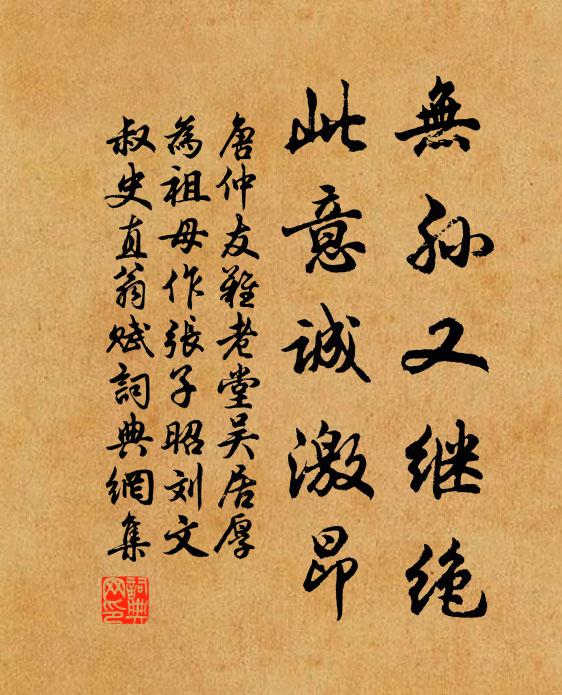 無孙又继绝
此意誠激昂
唐仲友難老堂吴居厚
為祖母作張子昭刘文
叔史直翁赋詞典網集
詞典
网印